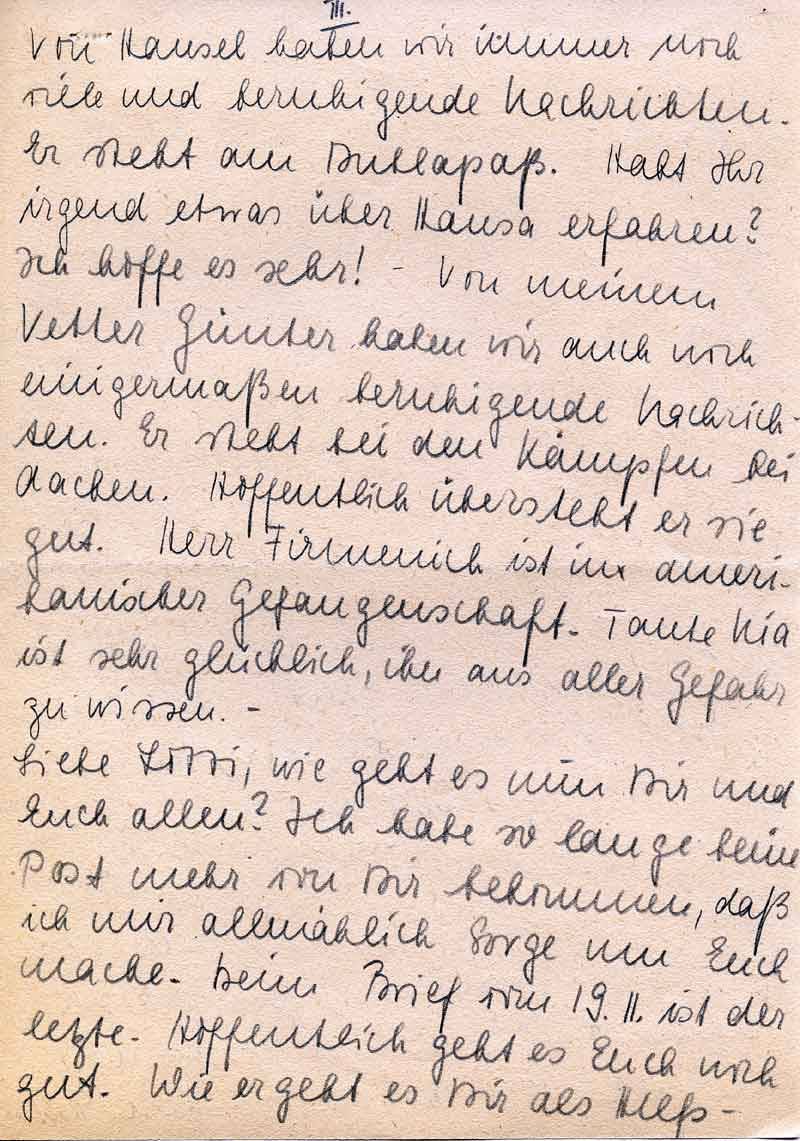 III.
Von Hansel haben wir immer noch
viele und beruhigende Nachrichten.
Er steht am Duklapaß. Habt Ihr
irgend etwas über Hansa erfahren?
Ich hoffe es sehr! - Von meinem
Vetter Günter haben wir auch noch
einigermaßen beruhigende Nachrich-
ten. Er steht bei den Kämpfen bei
Aachen. Hoffentlich übersteht er sie
gut. Herr Firmenich ist in ameri-
kanischer Gefangenschaft. Tante Mia
ist sehr glücklich, ihn aus aller Gefahr
zu wissen. -
Liebe Lissi, wie geht es nun Dir und
Euch allen? Ich habe so lange keine
Post mehr von Dir bekommen, daß
ich mir allmählich Sorge um Euch
mache. Dein Brief vom 19. II. ist der
letzte. Hoffentlich geht es Euch noch
gut. Wie ergeht es Dir als Hilfs-